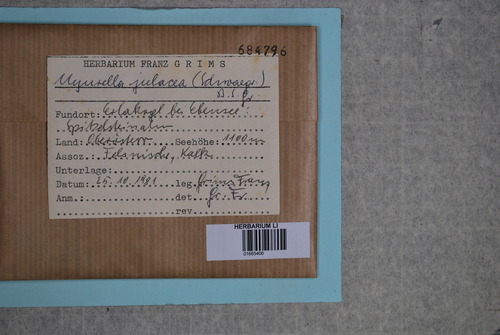 684796
HERBARIUM FRANZ GRIMS
Myurella julacea (Schwaegr.)
B.S.G.
Fundort: Erlakogl bei Ebensee:
Spitzlsteinalm
Land: Oberöster. Seehöhe: 1100m
Assoz.: Felsnische, Kalk
Unterlage:
Datum: 25.10.1981 leg. Grims Franz
Anm.: det. Gr. Fr.
rev.
HERBARIUM LI
01665406